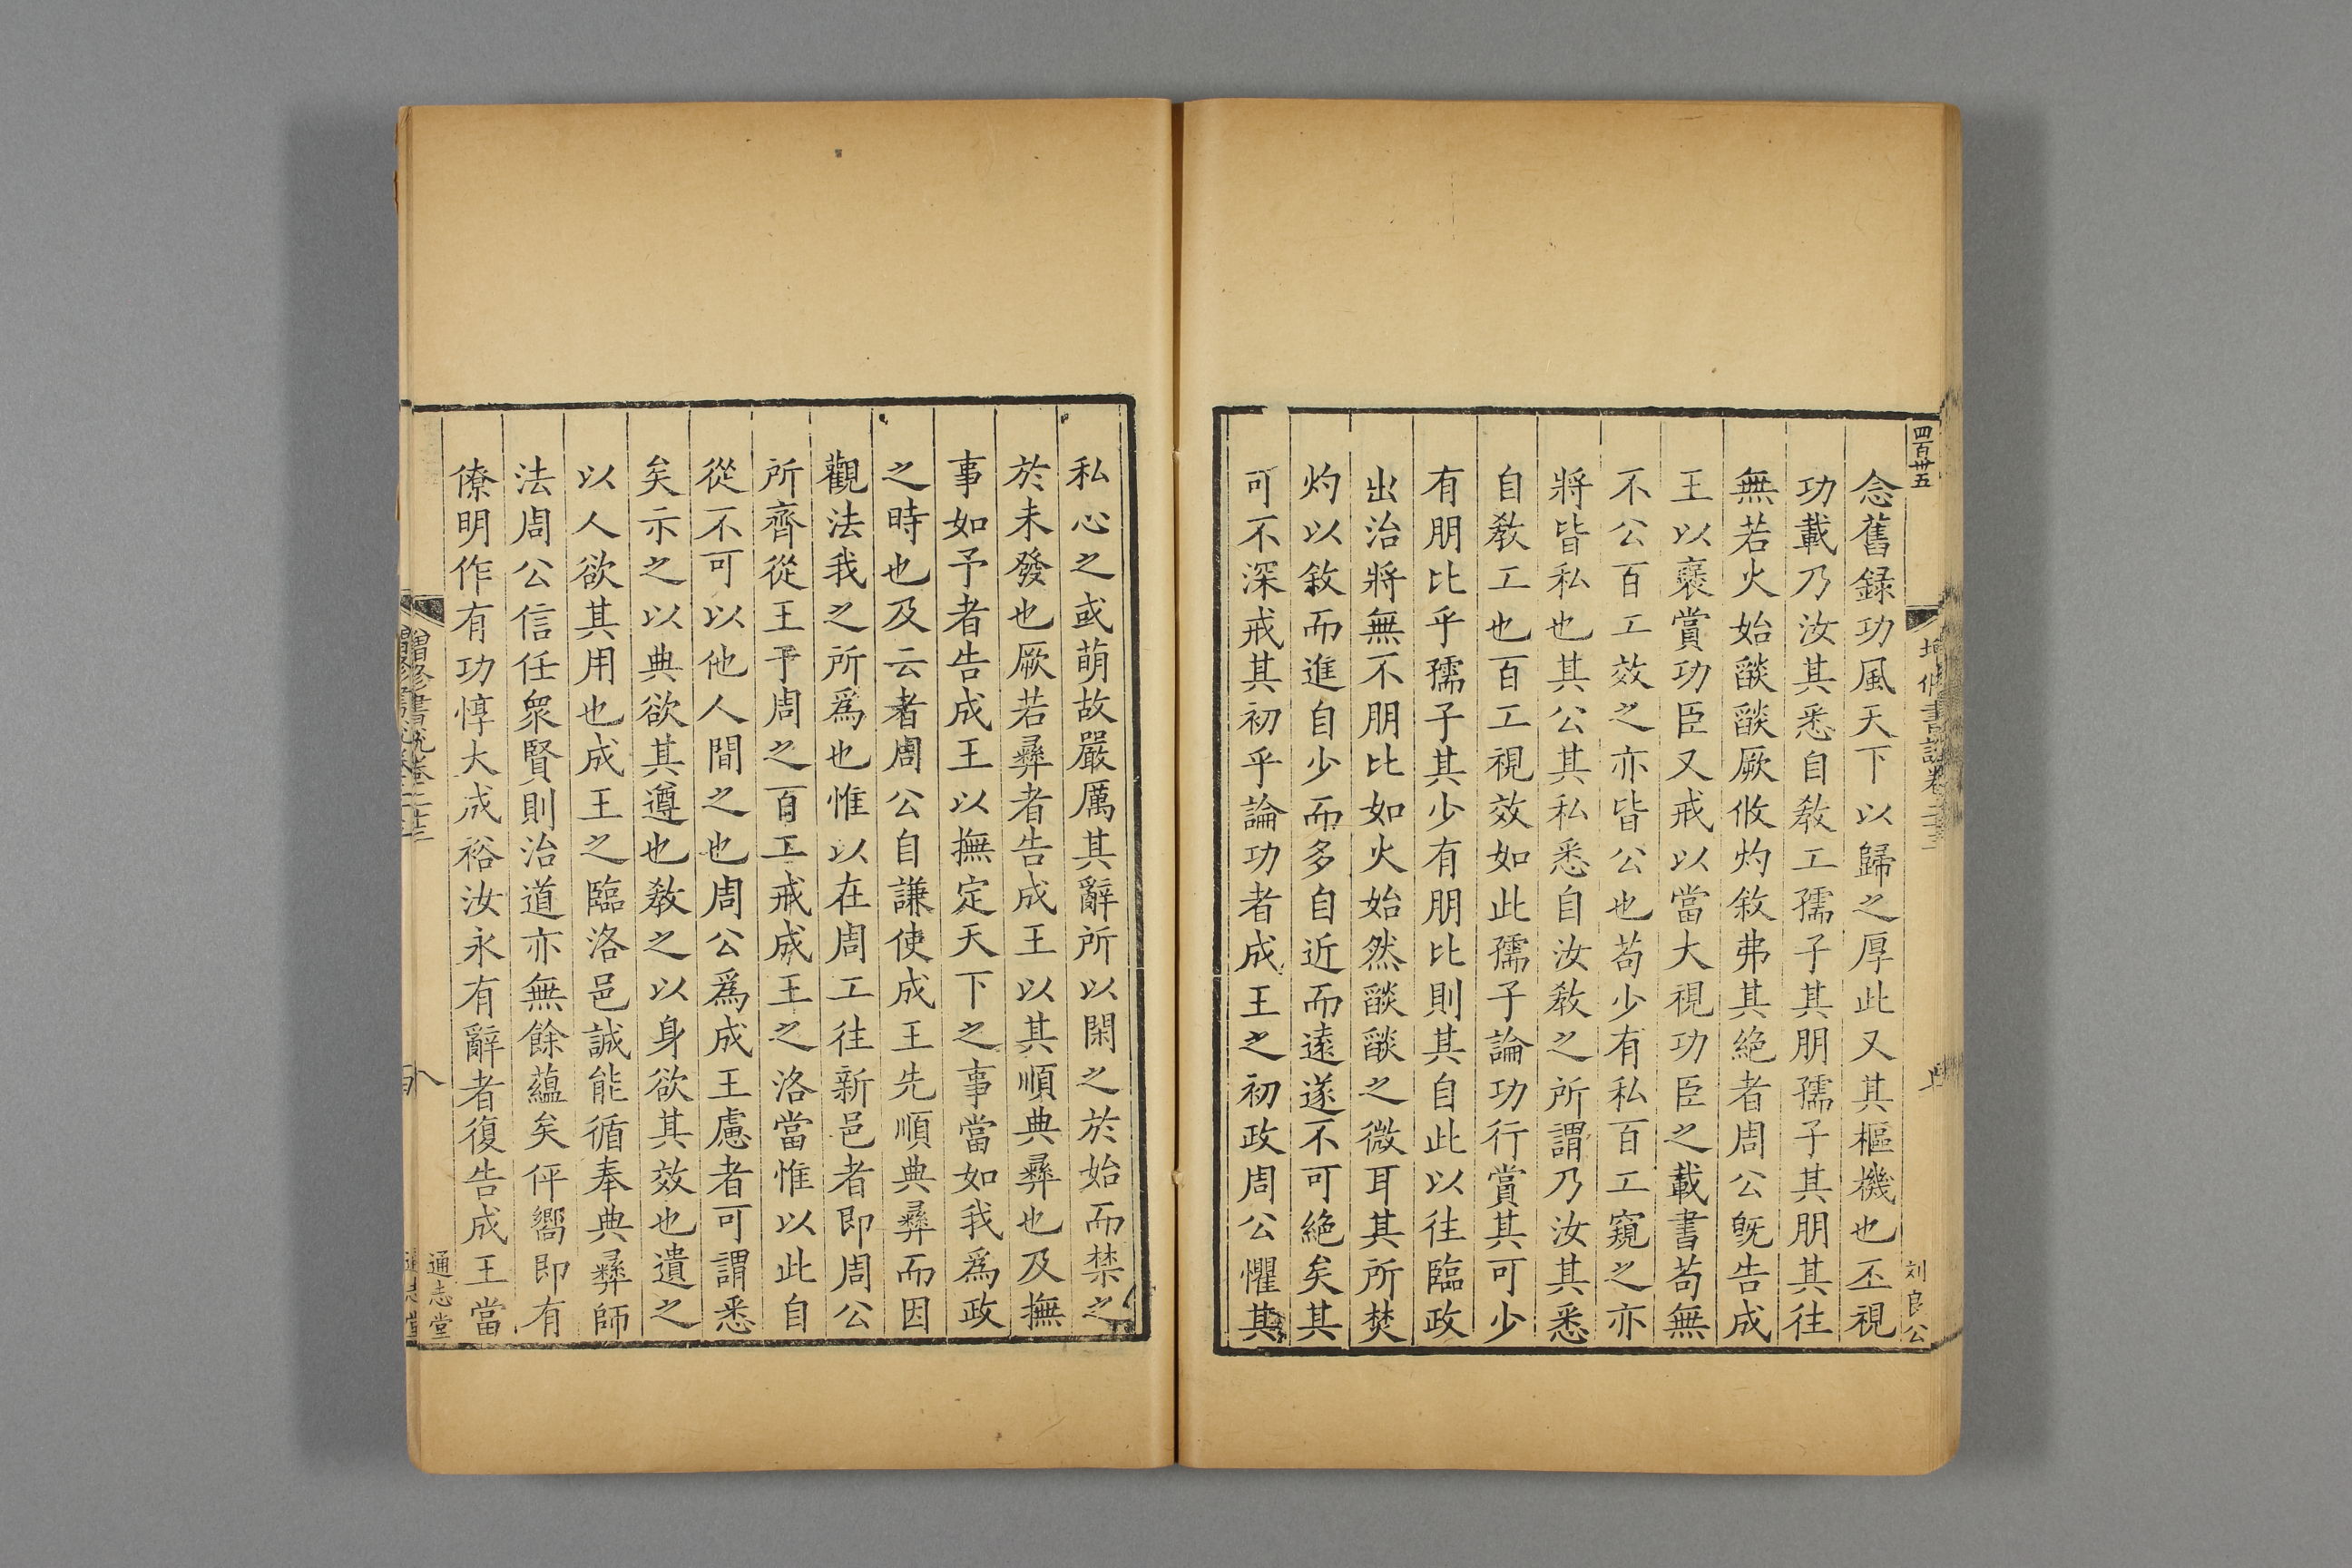 四百卅五
書說卷二十三
刘良公
念舊録功風天下以歸之厚此又其樞機也丕視
功載乃汝其悉自敎工孺子其朋孺子其朋其往
無若火始燄燄厥攸灼敘弗其絶者周公旣告成
王以襃賞功臣又戒以當大視功臣之載書苟無
不公百工效之亦皆公也苟少有私百工窺之亦
將皆私也其公其私悉自汝敎之所謂乃汝其悉
自敎工也百工視效如此孺子論功行賞其可少
有朋比乎孺子其少有朋比則其自此以往臨政
出治將無不朋比如火始然燄燄之微耳其所焚
灼以敘而進自少而多自近而遠遂不可絶矣其
可不深戒其初乎論功者成王之初政周公懼其
私心之或萌故嚴厲其辭所以閑之於始而禁之
於未發也厥若彝者告成王以其順典彝也及撫
事如予者告成王以撫定天下之事當如我爲政
之時也及云者周公自謙使成王先順典彝而因
觀法我之所爲也惟以在周工往新邑者即周公
所齊從王于周之百工戒成王之洛當惟以此自
從不可以他人間之也周公爲成王慮者可謂悉
矣示之以典欲其遵也敎之以身欲其效也遺之
以人欲其用也成王之臨洛邑誠能循奉典彝師
法周公信任衆賢則治道亦無餘藴矣伻嚮即有
僚明作有功惇大成裕汝永有辭者復告成王當
增修書說卷二十三
八
通志堂